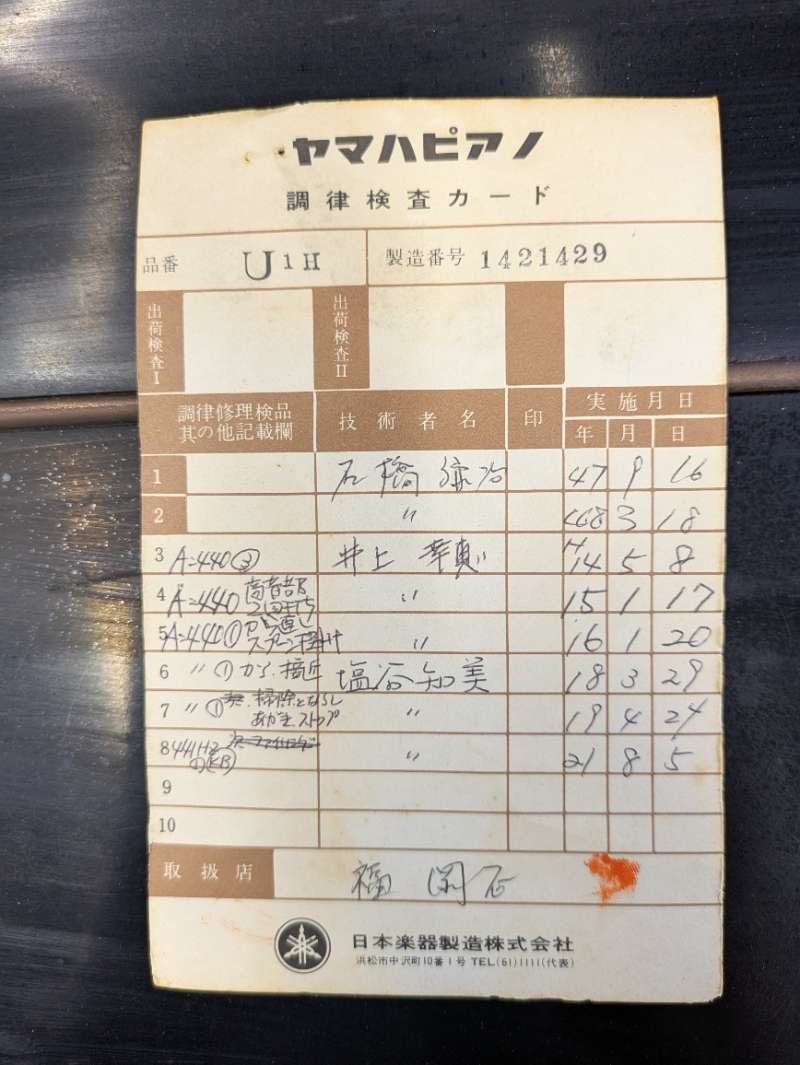 ヤマハピアノ
調律検査カード
品番 U1H 製造番号 1421429
出荷検査I 出荷検査II
調律修理検品 其の他記載欄 技術者名 印 実施月日
年 月 日
1 石橋 47 9 16
2 〃 48 3 18
3 A=440 ② 井上 H14 5 8
4 A=440 高音部 2回打ち 〃 15 1 17
5 A=440 ① 直し 〃 16 1 20
6 〃 ① から、接近 塩谷知美 18 3 29
7 〃 ① 掃除とならし あがき、ストップ 〃 19 4 24
8 441Hz 〃 21 8 5
9
10
取扱店 福岡店
日本楽器製造株式会社
浜松市中沢町10番1号 TEL(61)1111(代表)